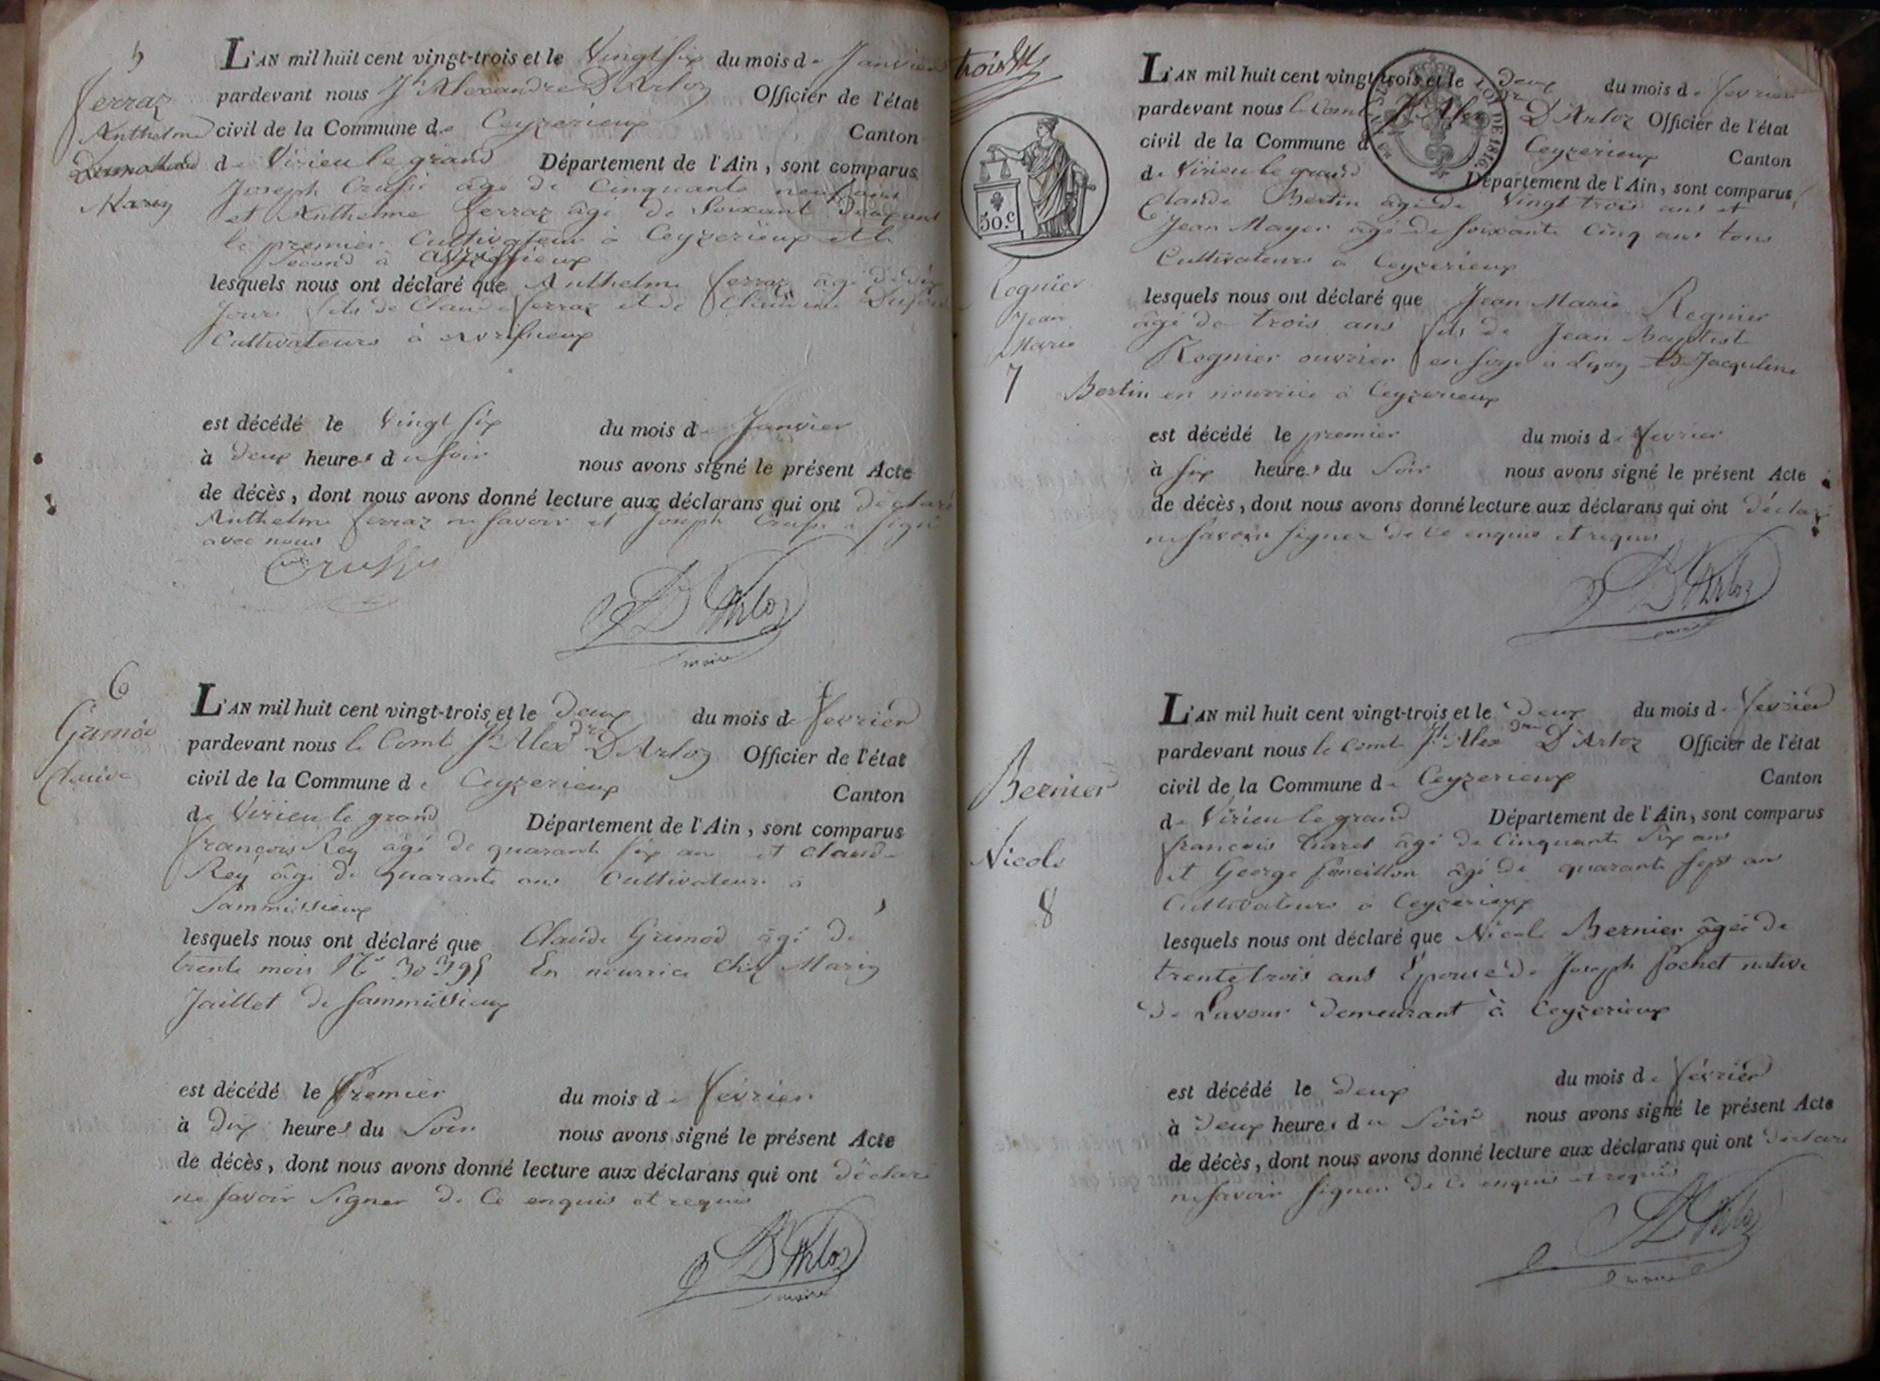 5
Ferraz
Anthelme
L'AN mil huit cent vingt-trois et le Vingt six du mois de Janvier
pardevant nous Jh Alexandre D'Arloz Officier de l'état
civil de la Commune de Ceyzerieux Canton
de Virieu le grand Département de l'Ain, sont comparus
Joseph Crussi âgé de Cinquante neuf ans
et Anthelme ferraz âgé de Soixant Deux ans
le premier Cultivateur à Ceyzerieux et le
second à
lesquels nous ont déclaré que Anthelme ferraz âgé de dix
Jours fils de Claude ferraz et de Claudine
Cultivateurs à
est décédé le Vingt six du mois de Janvier
à deux heures du Soir nous avons signé le présent Acte
de décès, dont nous avons donné lecture aux déclarans qui ont déclaré
Anthelme ferraz ne savoir et Joseph Crussi a signé
avec nous
D'Arloz
maire
6
Grimod
Claude
L'AN mil huit cent vingt-trois et le deux du mois de fevrier
pardevant nous le Comte Jh Alexdre D'Arloz Officier de l'état
civil de la Commune de Ceyzerieux Canton
de Virieu le grand Département de l'Ain, sont comparus
françois Rey âgé de quarante six ans et claude
Rey âgé de quarante ans Cultivateurs à
Sammissieux
lesquels nous ont déclaré que Claude Grimod âgé de
trente mois No 30395 En nourrice chez Marie
Jaillet de Sammissieux
est décédé le Premier du mois de fevrier
à dix heures du Soir nous avons signé le présent Acte
de décès, dont nous avons donné lecture aux déclarans qui ont déclaré
ne savoir signer de ce enquis et requis
D'Arloz
maire
trois
50.c
LOI DE 1816
Rognier
Jean
Marie
7
L'AN mil huit cent vingt-trois et le deux du mois de fevrier
pardevant nous le Comte Jh Alexdre D'Arloz Officier de l'état
civil de la Commune de Ceyzerieux Canton
de Virieu le grand Département de l'Ain, sont comparus
Claude Bertin âgé de Vingt trois ans et
Jean Mayer âgé de soixante Cinq ans tous
Cultivateurs à Ceyzerieux
lesquels nous ont déclaré que Jean Marie Regnier
âgé de trois ans fils de Jean Baptist
Rognier ouvrier en soye à Lyon et de Jacqueline
Bertin en nourrice à Ceyzerieux
est décédé le premier du mois de fevrier
à six heures du Soir nous avons signé le présent Acte
de décès, dont nous avons donné lecture aux déclarans qui ont déclaré
ne savoir signer de ce enquis et requis
D'Arloz
maire
Bernier
Nicole
8
L'AN mil huit cent vingt-trois et le deux du mois de fevrier
pardevant nous le Comte Jh Alexdre D'Arloz Officier de l'état
civil de la Commune de Ceyzerieux Canton
de Virieu le grand Département de l'Ain, sont comparus
francois Curret âgé de Cinquante six ans
et George âgé de quarante sept ans
Cultivateurs à Ceyzerieux
lesquels nous ont déclaré que Nicole Bernier âgée de
trente trois ans Epouse de Joseph Pochet native
de Lavour demeurant à Ceyzerieux
est décédé le deux du mois de fevrier
à deux heures du Soir nous avons signé le présent Acte
de décès, dont nous avons donné lecture aux déclarans qui ont déclaré
ne savoir signer de ce enquis et requis
D'Arloz
maire